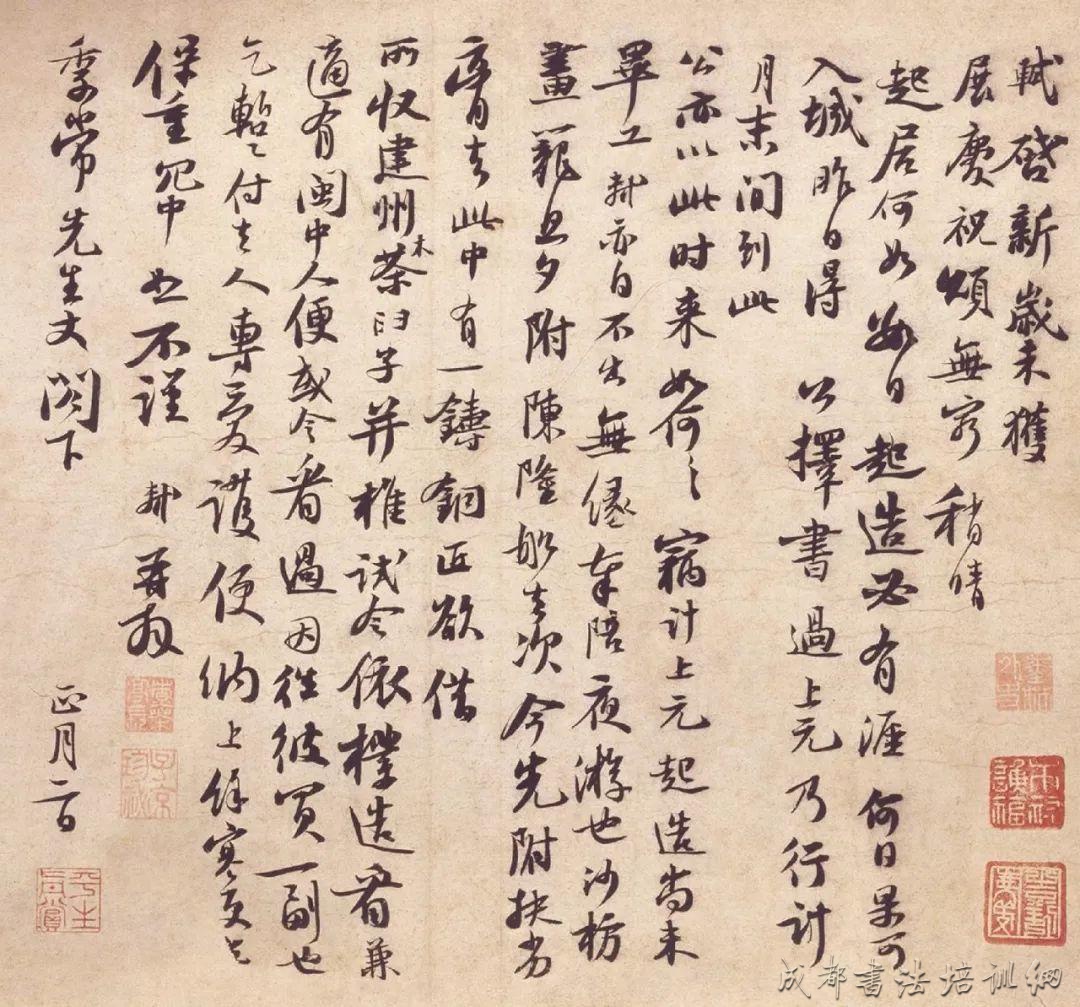 軾啓新歲未獲
展慶祝頌無窮稍晴
起居何如數日起造必有涯何日果可
入城昨日得公擇書過上元乃行計
月末間到此
公亦以此時來如何々竊計上元起造尚未
畢工軾亦自不出無緣奉陪夜游也沙枋
畫籠旦夕附陳隆船去次今先附扶劣
膏去此中有一鑄銅匠欲借
所收建州木茶臼子并椎試令依樣造看兼
適有閩中人便或令看過因往彼買一副也
乞暫付去人專愛護便納上餘寒更乞
保重冗中恕不謹軾再拜
季常先生丈閣下
正月二日
成都書法培训網